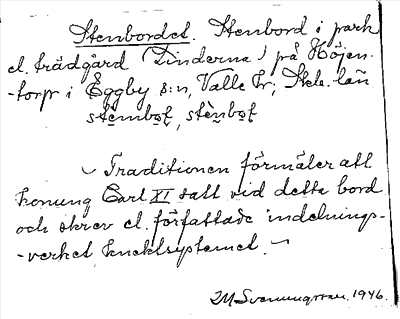 Stenbordet. Stenbord i park
el. trädgård (Linderna) på Höjen-
-torp i Eggby s:n, Valle hr, Skbs. län
stembot, stènbot
Traditionen förmäler att
konung Carl XI satt vid detta bord
och skrev el. författade indelnings-
-verket knektsystemet.
Svenungsson. 1946.